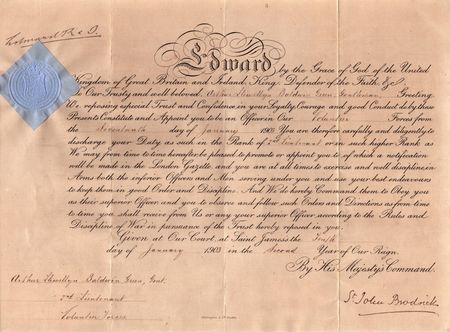 Edward R & I.
Edward, by the Grace of God of the United
Kingdom of Great Britain and Ireland, King, Defender of the Faith &c
To Our Trusty and well beloved Arthur Llewellyn Baldwin Green, Gentleman, Greeting.
We, reposing special Trust and Confidence in your Loyalty, Courage and good Conduct, do by these
Presents Constitute and Appoint you to be an Officer in Our Volunteer Forces from
the day of January 1903. You are therefore carefully and diligently to
discharge your Duty as such in the Rank of 2nd Lieutenant or in such higher Rank as
We may from time to time hereafter be pleased to promote or appoint you to of which a notification
will be made in the London Gazette, and you are at all times to exercise and well discipline in
Arms both the inferior Officers and Men serving under you and use your best endeavours
to keep them in good Order and Discipline. And We do hereby Command them to Obey you
as their superior Officer and you to observe and follow such Orders and Directions as from time
to time you shall receive from Us or any your superior Officer, according to the Rules and
Discipline of War in pursuance of the Trust hereby reposed in you.
Given at Our Court, at Saint James's the Tenth
day of January 1903 in the Second Year of Our Reign.
By His Majesty's Command.
Arthur Llewellyn Baldwin Green, Gent.
2nd Lieutenant
Volunteer Forces
St John Brodrick